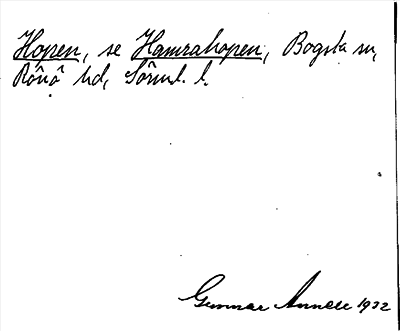 Hopen, se Hamrahopen, Bogsta sn,
Rönö hd, Sörml. l.
Gunnar Annell 1932